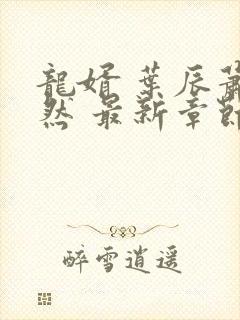 龍婿 葉辰蕭
然 最新章節
醉雪逍遥